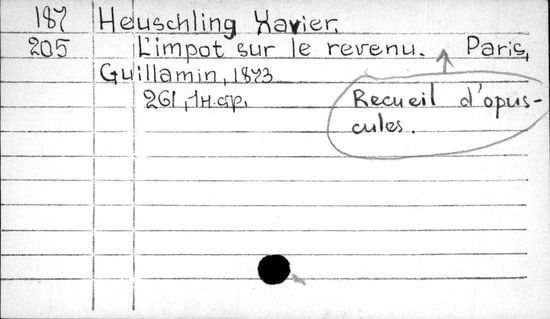 187 Heuschling Xavier.
205 L'impot sur le revenu. Paris,
Guillamin, 1873
261, 1н.ср.
Recueil d'opus-
cules.